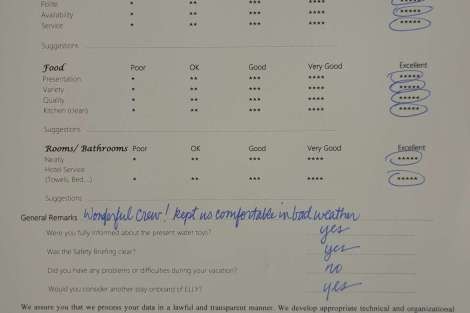 Polite * ** *** **** *****
Availability * ** *** **** *****
Service * ** *** **** *****
Suggestions
Food Poor OK Good Very Good Excellent
Presentation * ** *** **** *****
Variety * ** *** **** *****
Quality * ** *** **** *****
Kitchen (clean) * ** *** **** *****
Suggestions
Rooms/ Bathrooms Poor OK Good Very Good Excellent
Neatly * ** *** **** *****
Hotel Service
(Towels, Bed,...) * ** *** **** *****
Suggestions
General Remarks Wonderful Crew! kept us comfortable in bad weather
Were you fully informed about the present water toys? yes
Was the Safety Briefing clear? yes
Did you have any problems or difficulties during your vacation? no
Would you consider another stay onboard of ELLY? yes
We assure you that we process your data in a lawful and transparent manner. We develop appropriate technical and organizational